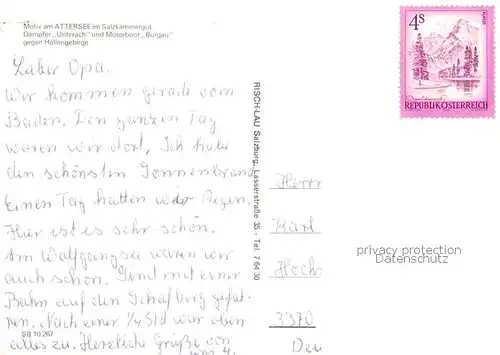 Motiv am ATTERSEE im Salzkammergut
Dampfer „Unterach" und Motorboot „Burgau"
gegen Höllengebirge
Lieber Opa.
Wir kommen gerade vom
Baden. Den ganzen Tag
waren wir dort, Ich habe
den schönsten Sonnenbrand
Einen Tag hatten wir Regen,
Hier ist es sehr schön.
Am Wolfgangsee waren wir
auch schon. Sind mit einer
Bahn auf den Schafberg gefah-
ren. Nach einer 1/4 Std war oben
alles zu. Herzliche Grüße von
SB 10.267
RISCH-LAU Salzburg, Lasserstraße 35 - Tel. 7 64 30
4S
REPUBLIK ÖSTERREICH
Herrn
Karl
Hoch
3370
privacy protection
Datenschutz